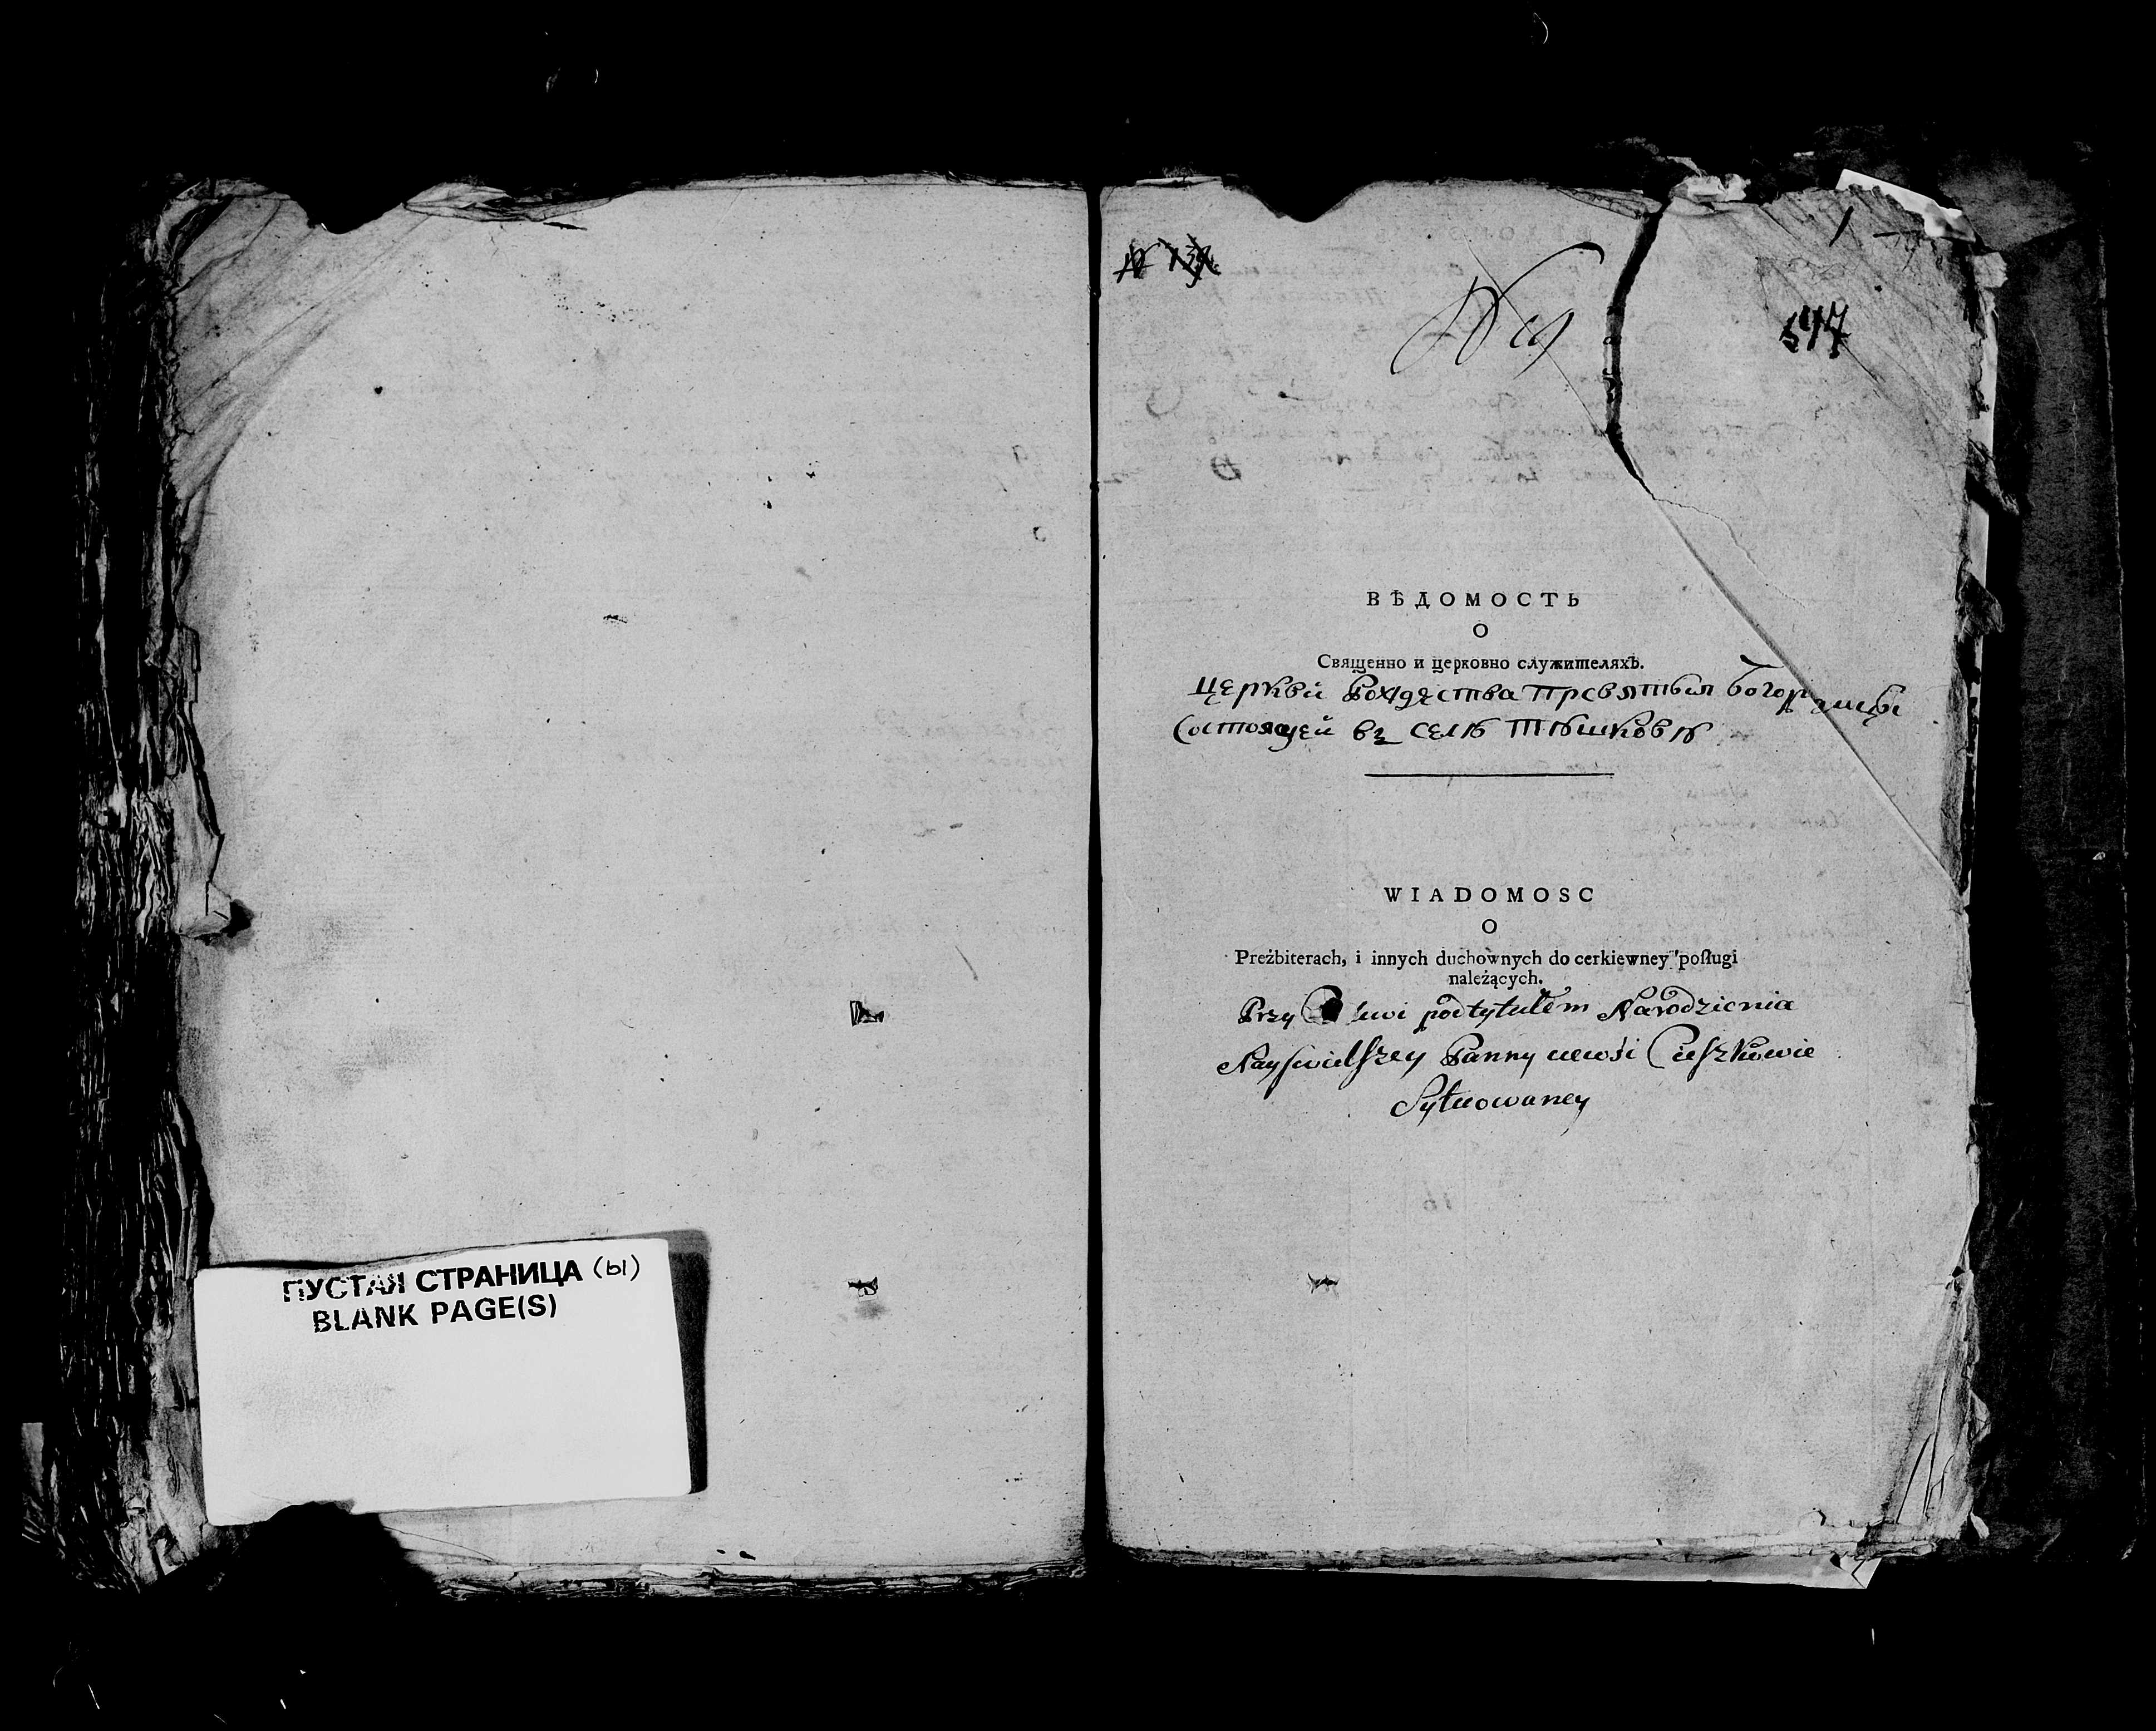 ПУСТАЯ СТРАНИЦА (ы)
BLANK PAGE(S)
547
ВѢДОМОСТЬ
О
Священно и церковно служителяхъ.
Церкви Рождества Пресвятыя Богородицы
Состоящей въ селѣ Тѣшковѣ
WIADOMOSC
O
Preżbiterach, i innych duchownych do cerkiewney posługi
należących.
Przy pod tytułem Narodzienia
Nayświętszey Panny we wśi Cieszkowie
Sytuowaney